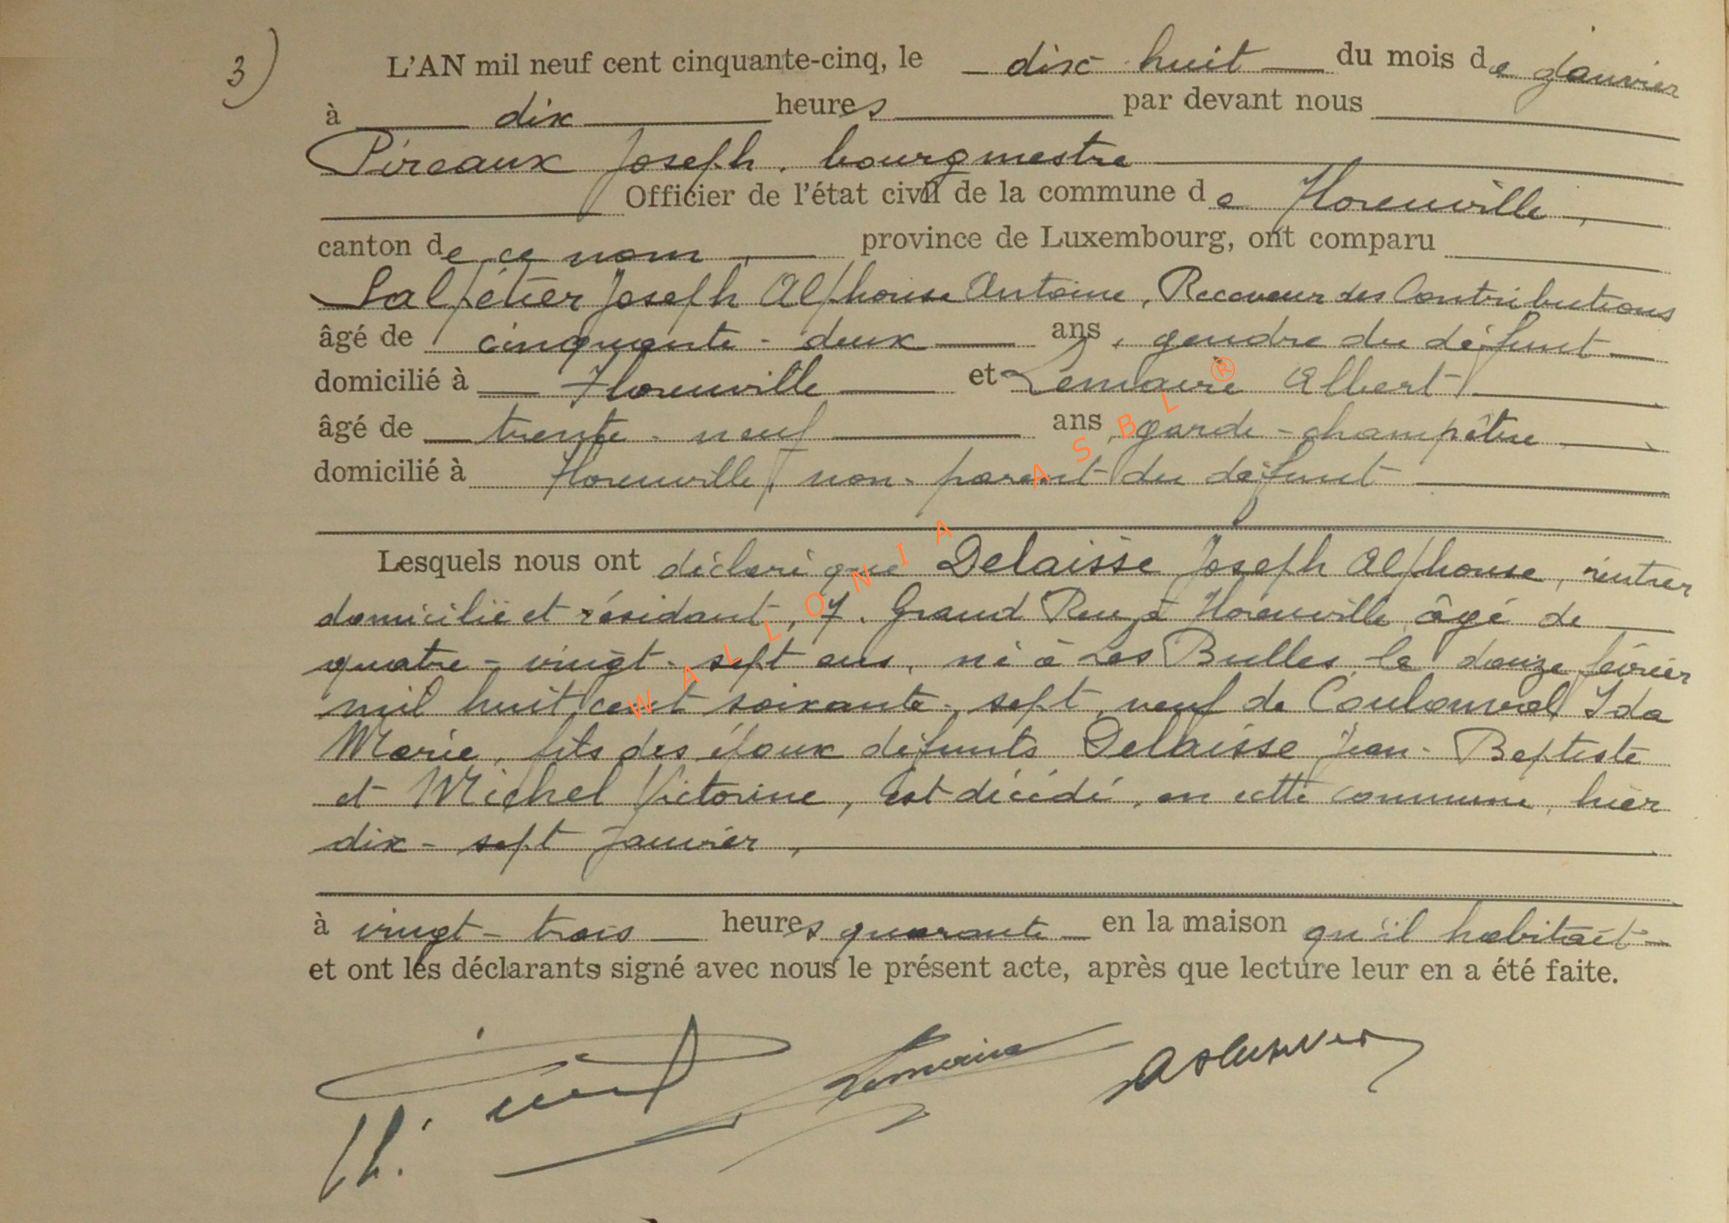 3) L'AN mil neuf cent cinquante-cinq, le dix-huit du mois de janvier
à dix heures par devant nous
Pireaux Joseph, bourgmestre
Officier de l'état civil de la commune de Florenville,
canton de ce nom, province de Luxembourg, ont comparu
Salpétier Joseph Alphonse Antoine, Receveur des Contributions
âgé de cinquante-deux ans, gendre du défunt
domicilié à Florenville et Lemaire Albert
âgé de trente-neuf ans, garde-champêtre
domicilié à Florenville, non-parent du défunt
Lesquels nous ont déclaré que Delaisse Joseph Alphonse, rentier
domicilié et résidant, 7, Grand Rue, à Florenville, âgé de
quatre-vingt-sept ans, né à Les Bulles, le douze février
mil huit cent soixante-sept, veuf de Ida
Marie, fils des époux défunts Delaisse Jean-Baptiste
et Michel Victorine, est décédé, en cette commune, hier
dix-sept janvier,
à vingt-trois heures quarante en la maison qu'il habitait
et ont les déclarants signé avec nous le présent acte, après que lecture leur en a été faite.
Lemaire
WALLONIA ASBL ®